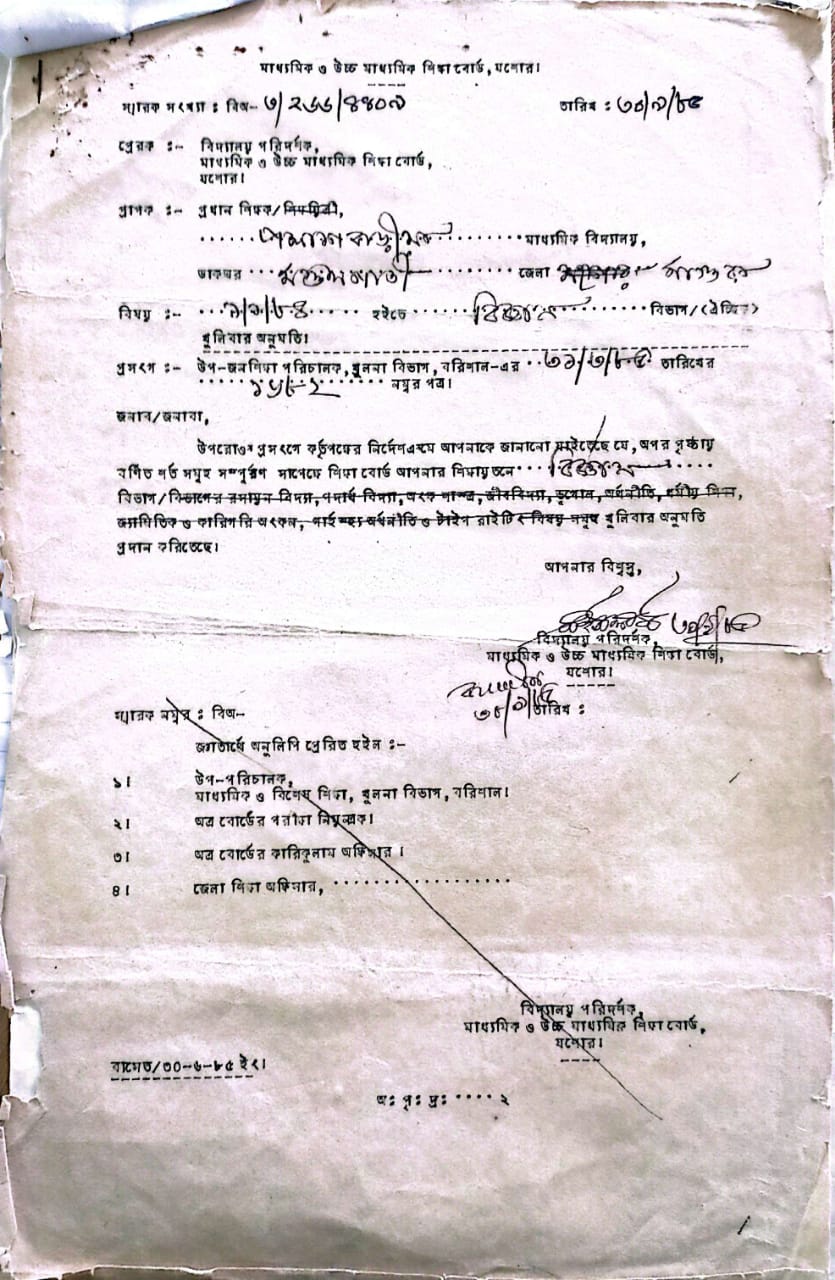 মাধ্যমিক ও উচ্চ মাধ্যমিক শিক্ষা বোর্ড, যশোর।
স্মারক সংখ্যা : বিঅ- ৩/২৬৬/৪৪০৯ তারিখ : ৩০/৯/৮৫
প্রেরক :- বিদ্যালয় পরিদর্শক,
মাধ্যমিক ও উচ্চ মাধ্যমিক শিক্ষা বোর্ড,
যশোর।
প্রাপক :- প্রধান শিক্ষক/শিক্ষয়িত্রী,
মাধ্যমিক বিদ্যালয়,
ডাকঘর জেলা
বিষয় :- ১/১/৮৪ হইতে বিজ্ঞান বিভাগ/(ঐচ্ছিক)
খুলিবার অনুমতি।
প্রসংগ :- উপ-জনশিক্ষা পরিচালক, খুলনা বিভাগ, বরিশাল-এর ৩১/৩/৮৫ তারিখের
নম্বর পত্র।
জনাব/জনাবা,
উপরোক্ত প্রসংগে কর্তৃপক্ষের নির্দেশক্রমে আপনাকে জানানো যাইতেছে যে, অপর পৃষ্ঠায়
বর্ণিত শর্ত সমূহ সম্পূরণ সাপেক্ষে শিক্ষা বোর্ড আপনার শিক্ষায়তনে বিজ্ঞান
বিভাগ/বিভাগের রসায়ন বিদ্যা, পদার্থ বিদ্যা, অংক শাস্ত্র, জীববিদ্যা, ভূগোল, অর্থনীতি, ধর্মীয় শিক্ষা,
জ্যামিতিক ও কারিগরি অংকন, গার্হস্থ্য অর্থনীতি ও টাইপ রাইটিং বিষয় সমূহ খুলিবার অনুমতি
প্রদান করিতেছে।
আপনার বিশ্বস্ত,
৩০/৯/৮৫
বিদ্যালয় পরিদর্শক,
মাধ্যমিক ও উচ্চ মাধ্যমিক শিক্ষা বোর্ড,
যশোর।
স্মারক নম্বর : বিঅ- তারিখ :
জ্ঞাতার্থে অনুলিপি প্রেরিত হইল :-
১। উপ-পরিচালক,
মাধ্যমিক ও বিশেষ শিক্ষা, খুলনা বিভাগ, বরিশাল।
২। অত্র বোর্ডের পরীক্ষা নিয়ন্ত্রক।
৩। অত্র বোর্ডের কারিকুলাম অফিসার।
৪। জেলা শিক্ষা অফিসার, ....................
বিদ্যালয় পরিদর্শক,
মাধ্যমিক ও উচ্চ মাধ্যমিক শিক্ষা বোর্ড,
যশোর।
বাসেত/৩০-৬-৮৫ ইং।
অঃ পৃঃ দ্রঃ .... ২